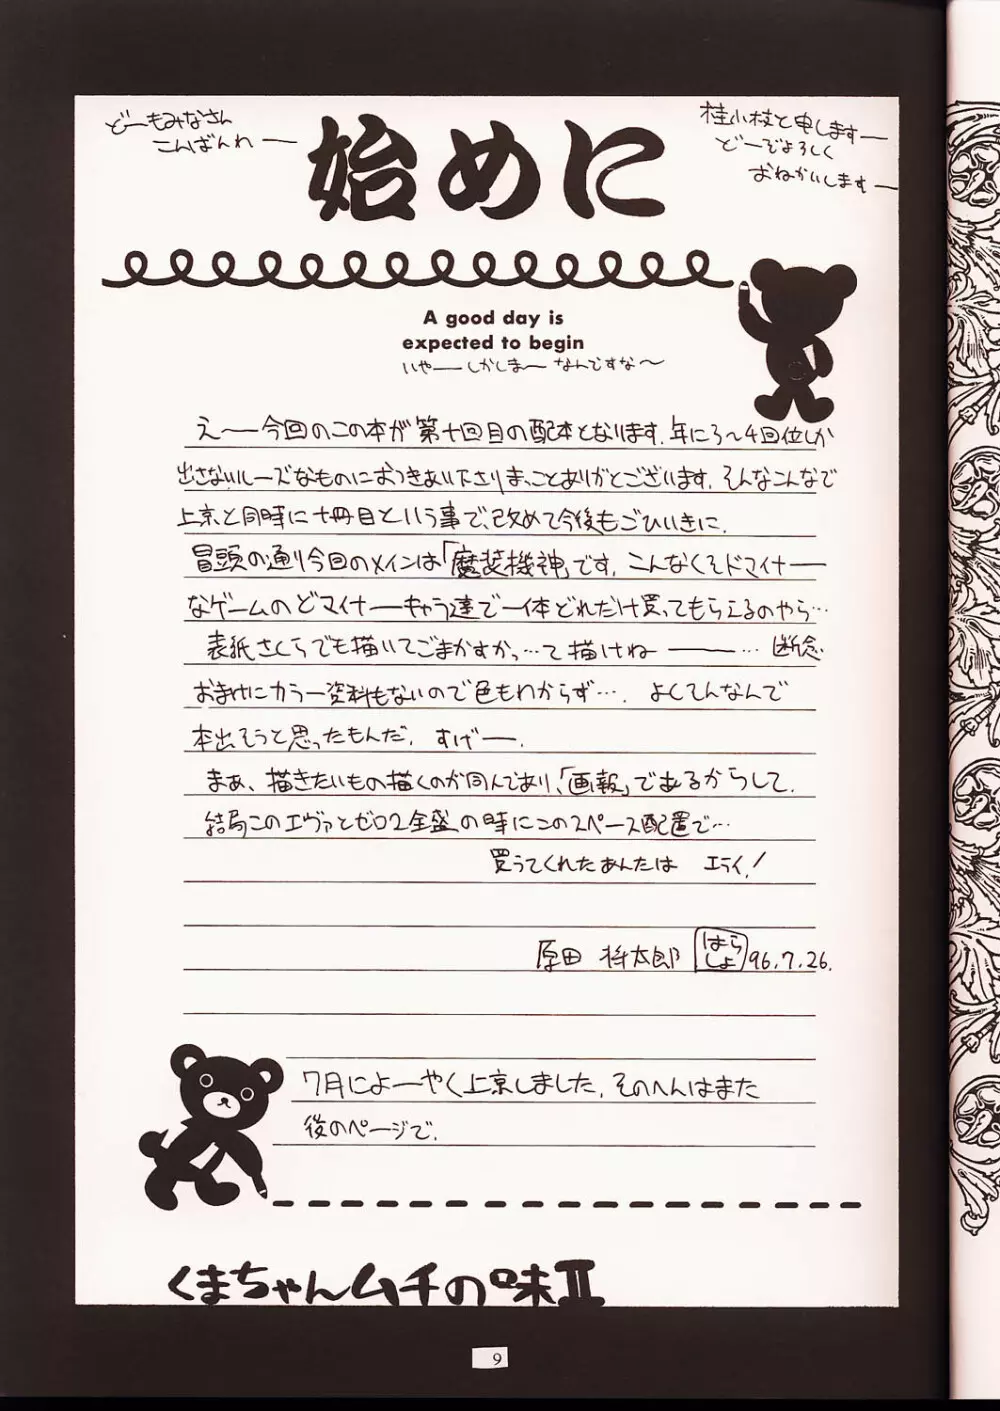 どーもみなさん
こんばんわー
始めに
桂小枝と申しますー
どーぞよろしく
おねがいしますー
A good day is
expected to begin
いやーしかしまーなんですな〜
えー今回のこの本が第十回目の配本となります。年に3〜4回位しか
出さないルーズなものにおつきあい下さりまことありがとございます。そんなこんなで
上京と同時に十冊目という事で、改めて今後もごひいきに。
冒頭の通り今回のメインは「魔装機神」です。こんなくそドマイナー
なゲームのどマイナーキャラ達で一体どれだけ買ってもらえるのやら…
表紙さくらでも描いてごまかすかっ…て描けねー…断念
おまけにカラー資料もないので色もわからず…。よくてんなんで
本出そうと思ったもんだ。すげー。
まぁ、描きたいもの描くのが同人であり、「画報」であるからして。
結局このエヴァとゼロ2全盛の時にこのスペース配置で…
買うてくれたあんたは エライ!
原田 将太郎 はらしょ 96.7.26.
7月によーやく上京しました。そのへんはまた
後のページで。
くまちゃんムチの味II
9